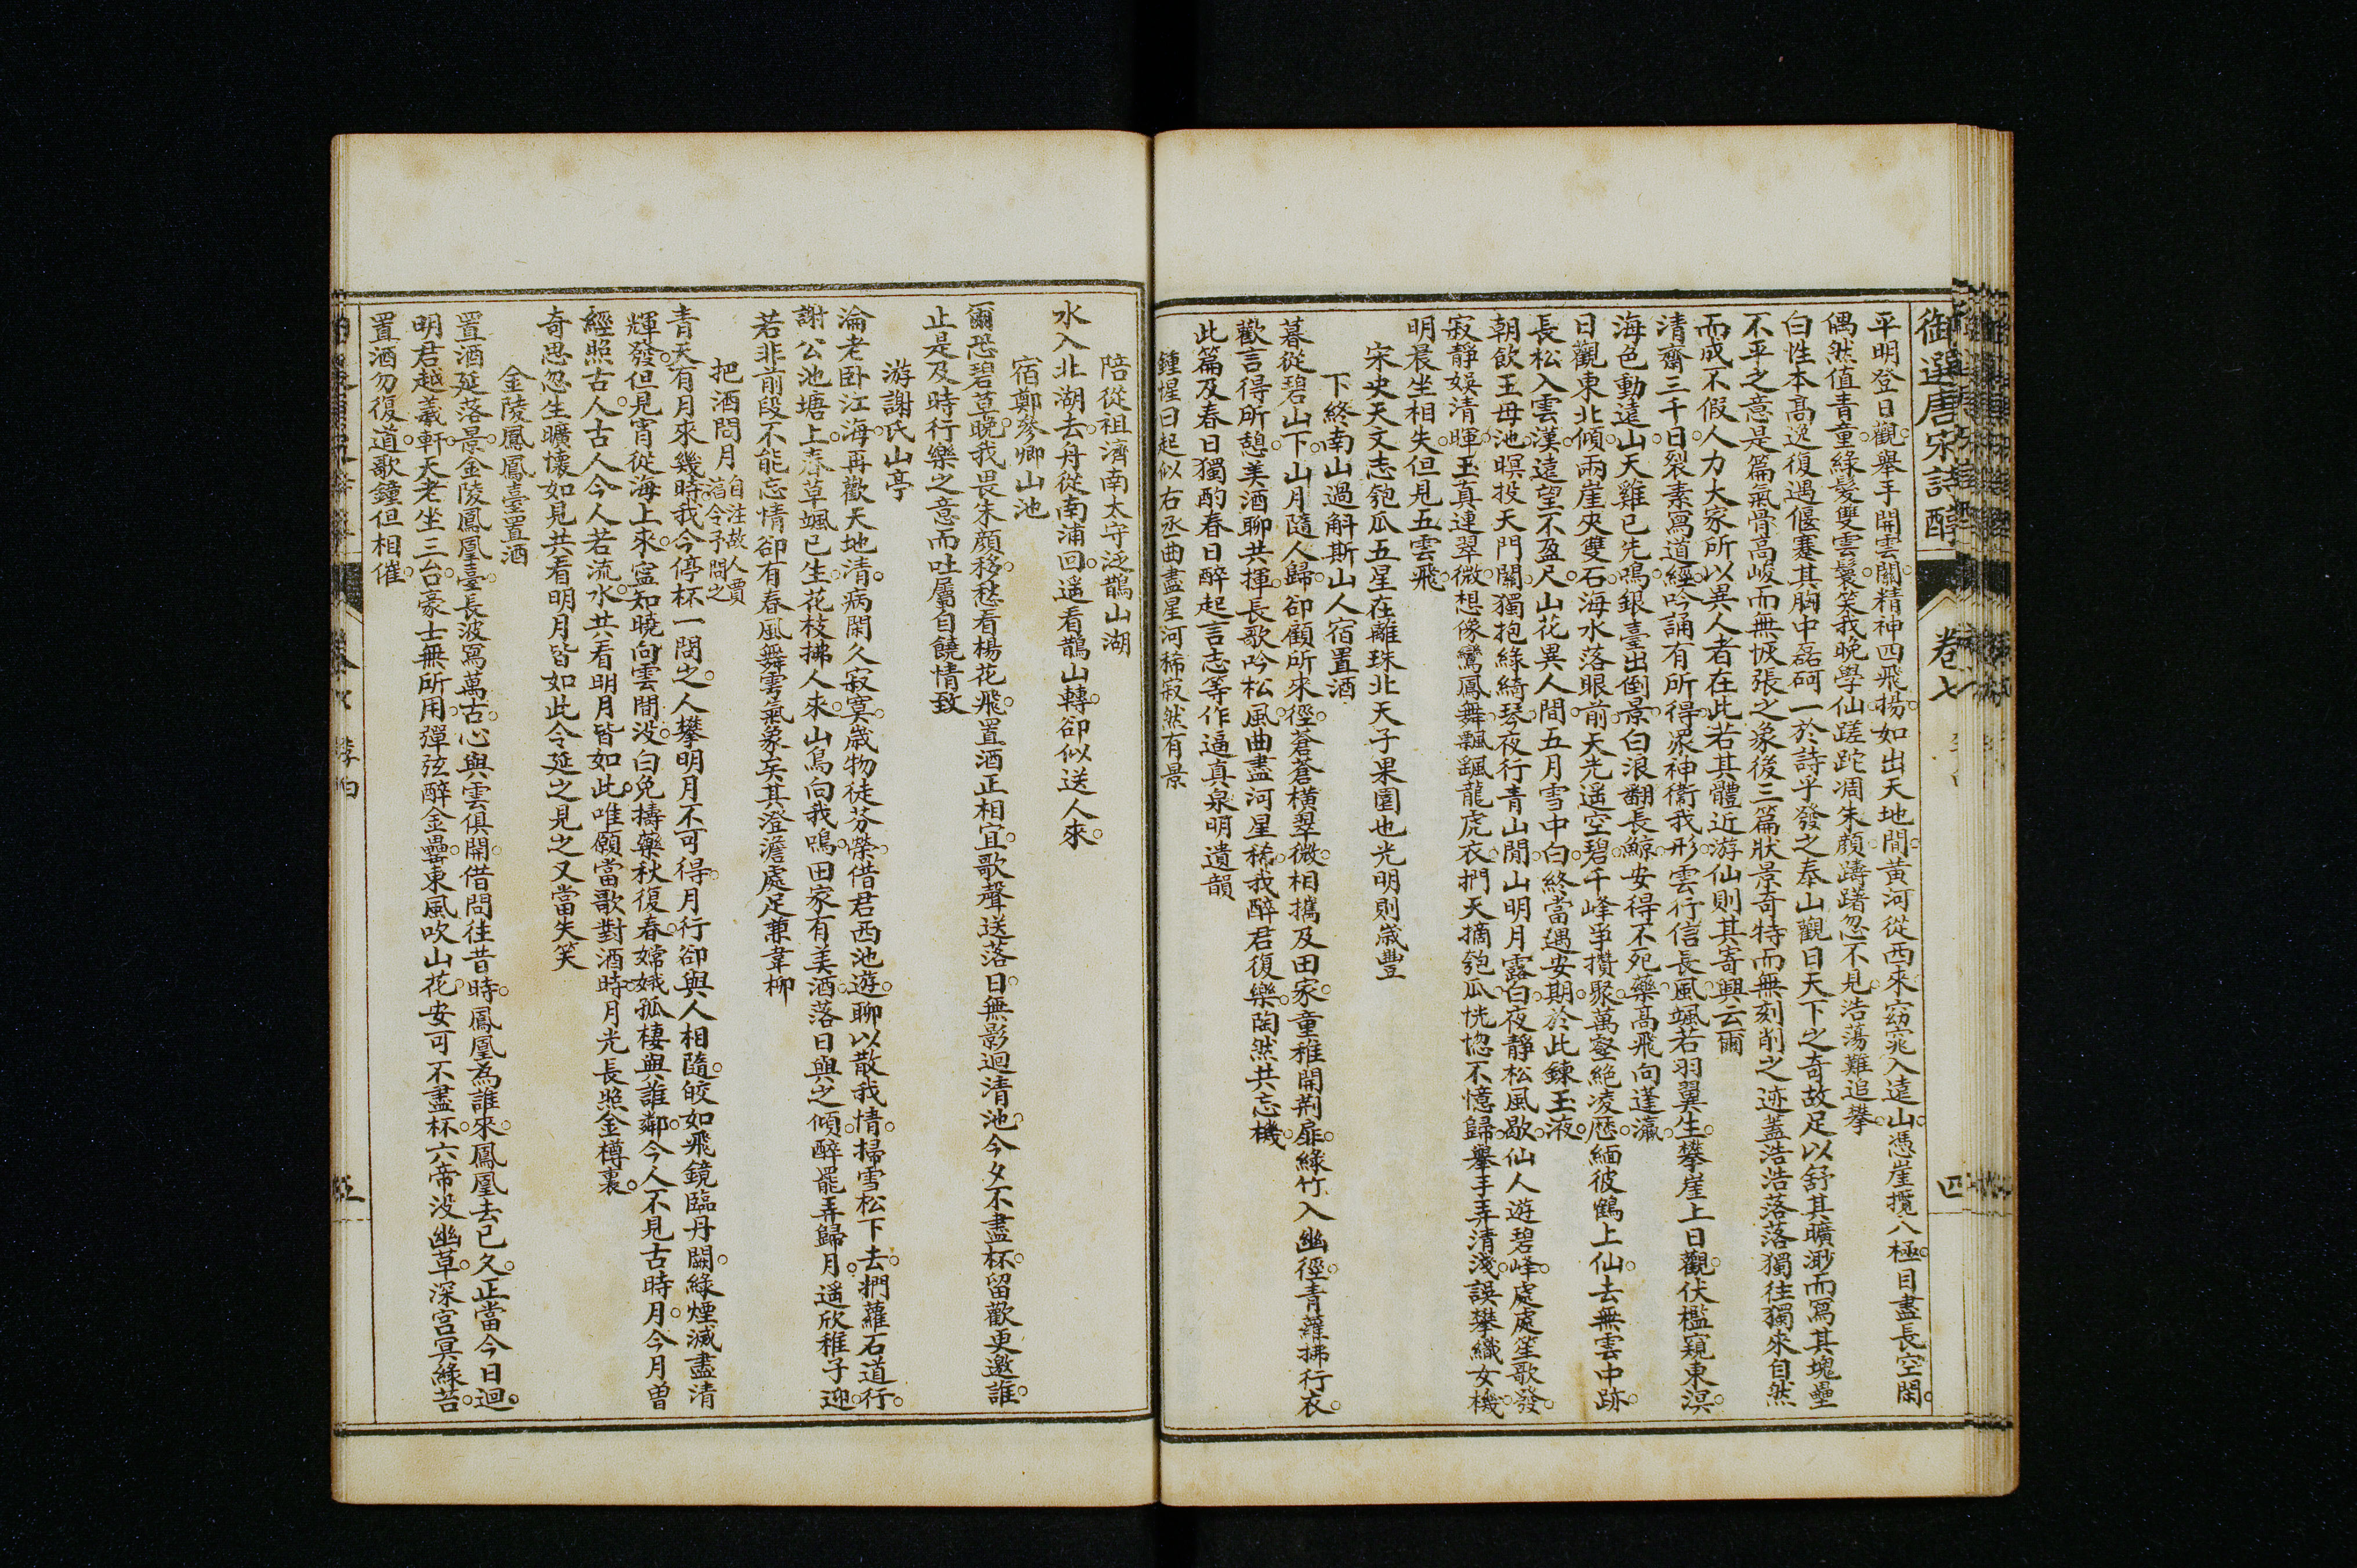 御選唐宋詩醇 卷七 四
平明登日觀舉手開雲關精神四飛揚如出天地間黃河從西來窈窕入遠山憑崖攬八極目盡長空閑
偶然值青童綠髮雙雲鬟笑我晚學仙蹉跎凋朱顏躊躇忽不見浩蕩難追攀
白性本高逸復遇偃蹇其胸中磊砢一於詩乎發之泰山觀日天下之奇故足以舒其曠渺而寫其塊壘
不平之意是篇氣骨高峻而無恢張之象後三篇狀景奇特而無刻削之迹蓋浩浩落落獨往獨來自然
而成不假人力大家所以異人者在此若其體近游仙則其寄興云爾
清齋三千日裂素寫道經吟誦有所得眾神衞我形雲行信長風颯若羽翼生攀崖上日觀伏檻窺東溟
海色動遠山天雞已先鳴銀臺出倒景白浪翻長鯨安得不死藥高飛向蓬瀛
日觀東北傾兩崖夾雙石海水落眼前天光遙空碧千峰爭攢聚萬壑絕凌歷緬彼鶴上仙去無雲中跡
長松入雲漢遠望不盈尺山花異人間五月雪中白終當遇安期於此鍊玉液
朝飲王母池暝投天門關獨抱綠綺琴夜行青山間山明月露白夜靜松風歇仙人遊碧峰處處笙歌發
寂靜娛清暉玉真連翠微想像鸞鳳舞飄颻龍虎衣捫天摘匏瓜恍惚不憶歸舉手弄清淺誤攀織女機
明晨坐相失但見五雲飛
宋史天文志匏瓜五星在離珠北天子果園也光明則歲豐
下終南山過斛斯山人宿置酒
暮從碧山下山月隨人歸卻顧所來徑蒼蒼橫翠微相攜及田家童稚開荊扉綠竹入幽徑青蘿拂行衣
歡言得所憩美酒聊共揮長歌吟松風曲盡河星稀我醉君復樂陶然共忘機
此篇及春日獨酌春日醉起言志等作逼真泉明遺韻
鍾惺曰起似右丞曲盡星河稀寂然有景
陪從祖濟南太守泛鵲山湖
水入北湖去舟從南浦回遙看鵲山轉卻似送人來
宿鄭參卿山池
爾恐碧草晚我畏朱顏移愁看楊花飛置酒正相宜歌聲送落日無影迴清池今夕不盡杯留歡更邀誰
止是及時行樂之意而吐屬自饒情致
游謝氏山亭
淪老卧江海再歡天地清病閑久寂寞歲物徒芬榮借君西池遊聊以散我情掃雪松下去捫蘿石道行
謝公池塘上春草颯已生花枝拂人來山鳥向我鳴田家有美酒落日與之傾醉罷弄歸月遙欣稚子迎
若非前段不能忘情卻有春風舞雩氣象矣其澄澹處足兼韋柳
把酒問月 自注故人賈淳令予問之
青天有月來幾時我今停杯一問之人攀明月不可得月行卻與人相隨皎如飛鏡臨丹闕綠煙滅盡清
輝發但見宵從海上來寧知曉向雲間沒白兔擣藥秋復春嫦娥孤棲與誰鄰今人不見古時月今月曾
經照古人古人今人若流水共看明月皆如此唯願當歌對酒時月光長照金樽裏
奇思忽生曠懷如見共看明月皆如此令延之見之又當失笑
金陵鳳凰臺置酒
置酒延落景金陵鳳凰臺長波寫萬古心與雲俱開借問往昔時鳳凰為誰來鳳凰去已久正當今日迴
明君越羲軒天老坐三台豪士無所用彈弦醉金罍東風吹山花安可不盡杯六帝没幽草深宮冥綠苔
置酒勿復道歌鐘但相催